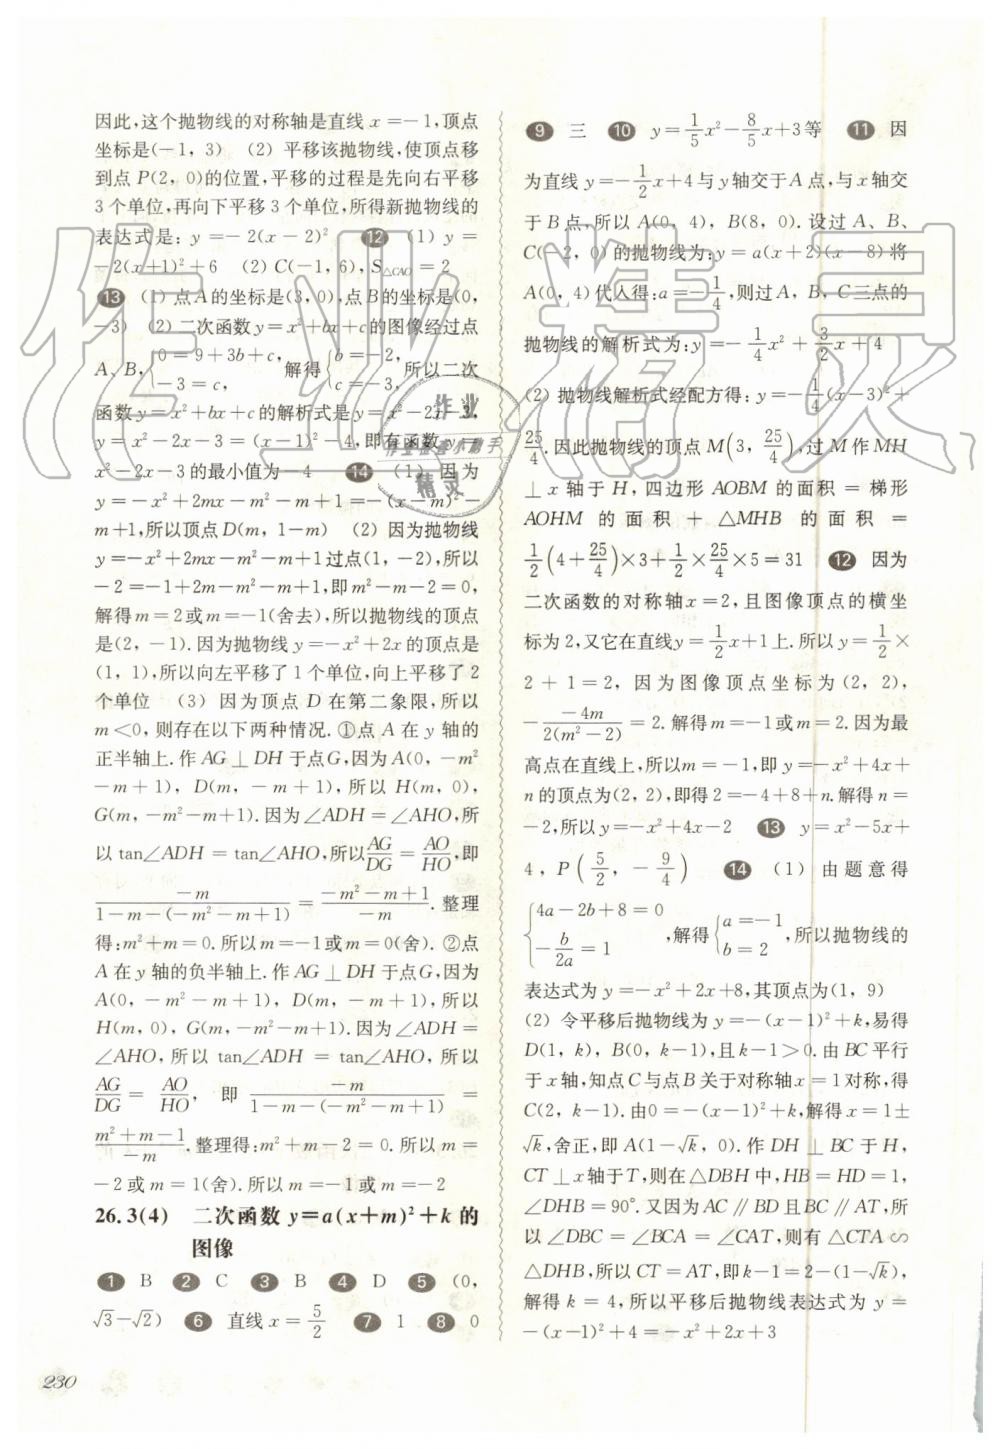 因此,这个抛物线的对称轴是直线 x=-1,顶点
坐标是(-1, 3) (2) 平移该抛物线,使顶点移
到点 P(2, 0)的位置,平移的过程是先向右平移
3 个单位,再向下平移 3 个单位,所得新抛物线的
表达式是: y=-2(x-2)² 12 (1) y=
-2(x+1)²+6 (2) C(-1, 6), S△CAO=2
13 (1) 点A的坐标是(3, 0),点B的坐标是(0,
-3) (2) 二次函数y=x²+bx+c的图像经过点
A、B, {0=9+3b+c, -3=c, 解得{b=-2, c=-3, 所以二次
函数y=x²+bx+c的解析式是y=x²-2x-3,
y=x²-2x-3=(x-1)²-4,即有函数y=
x²-2x-3的最小值为-4 14 (1) 因为
y=-x²+2mx-m²-m+1=-(x-m)²-
m+1,所以顶点D(m, 1-m) (2) 因为抛物线
y=-x²+2mx-m²-m+1过点(1, -2),所以
-2=-1+2m-m²-m+1,即m²-m-2=0,
解得m=2或m=-1(舍去),所以抛物线的顶点
是(2, -1).因为抛物线 y=-x²+2x的顶点是
(1, 1),所以向左平移了 1 个单位,向上平移了 2
个单位 (3) 因为顶点 D 在第二象限,所以
m<0,则存在以下两种情况.①点 A 在 y 轴的
正半轴上.作 AG⊥DH于点G,因为A(0, -m²
-m+1), D(m, -m+1),所以 H(m, 0),
G(m, -m²-m+1).因为∠ADH=∠AHO,所
以 tan∠ADH=tan∠AHO,所以AG/DG=AO/HO,即
-m/(1-m-(-m²-m+1))=(-m²-m+1)/(-m).整理
得:m²+m=0.所以m=-1或m=0(舍).②点
A 在 y 轴的负半轴上.作 AG⊥DH于点G,因为
A(0, -m²-m+1), D(m, -m+1),所以
H(m, 0), G(m, -m²-m+1).因为∠ADH=
∠AHO,所以 tan∠ADH=tan∠AHO,所以
AG/DG=AO/HO, 即 -m/(1-m-(-m²-m+1))=
(m²+m-1)/(-m).整理得:m²+m-2=0.所以m=
-2或m=1(舍).所以m=-1或m=-2
26.3(4) 二次函数 y=a(x+m)²+k 的
图像
1 B 2 C 3 B 4 D 5 (0,
√3-√2) 6 直线 x=5/2 7 1 8 0
230
9 三 10 y=1/5x²-8/5x+3等 11 因
为直线 y=-1/2x+4与y轴交于A点,与x轴交
于 B 点,所以 A(0, 4), B(8, 0).设过 A、B、
C(-2, 0)的抛物线为:y=a(x+2)(x-8)将
A(0, 4)代入得:a=-1/4,则过A、B、C三点的
抛物线的解析式为:y=-1/4x²+3/2x+4
(2) 抛物线解析式经配方得: y=-1/4(x-3)²+
25/4.因此抛物线的顶点 M(3, 25/4),过 M 作 MH
⊥x 轴于 H,四边形 AOBM 的面积=梯形
AOHM 的面积+△MHB 的面积=
1/2(4+25/4)×3+1/2×25/4×5=31 12 因为
二次函数的对称轴x=2,且图像顶点的横坐
标为2,又它在直线y=1/2x+1上.所以 y=1/2×
2+1=2,因为图像顶点坐标为(2, 2),
-(-4m)/(2(m²-2))=2.解得m=-1或m=2.因为最
高点在直线上,所以m=-1,即y=-x²+4x+
n的顶点为(2, 2),即得2=-4+8+n.解得n=
-2,所以y=-x²+4x-2 13 y=x²-5x+
4, P(5/2, -9/4) 14 (1) 由题意得
{4a-2b+8=0 -b/2a=1 ,解得{a=-1 b=2 ,所以抛物线的
表达式为y=-x²+2x+8,其顶点为(1, 9)
(2) 令平移后抛物线为y=-(x-1)²+k,易得
D(1, k), B(0, k-1),且k-1>0.由BC平行
于x轴,知点C与点B关于对称轴x=1对称,得
C(2, k-1).由0=-(x-1)²+k,解得 x=1±
√k,舍正,即 A(1-√k, 0).作 DH⊥BC于H,
CT⊥x轴于T,则在△DBH中,HB=HD=1,
∠DHB=90°.又因为AC∥BD且BC∥AT,所
以∠DBC=∠BCA=∠CAT,则有△CTA∽
△DHB,所以CT=AT,即k-1=2-(1-√k),
解得 k=4,所以平移后抛物线表达式为 y=
-(x-1)²+4=-x²+2x+3
作业精灵
作业
作业检查小助手
精灵